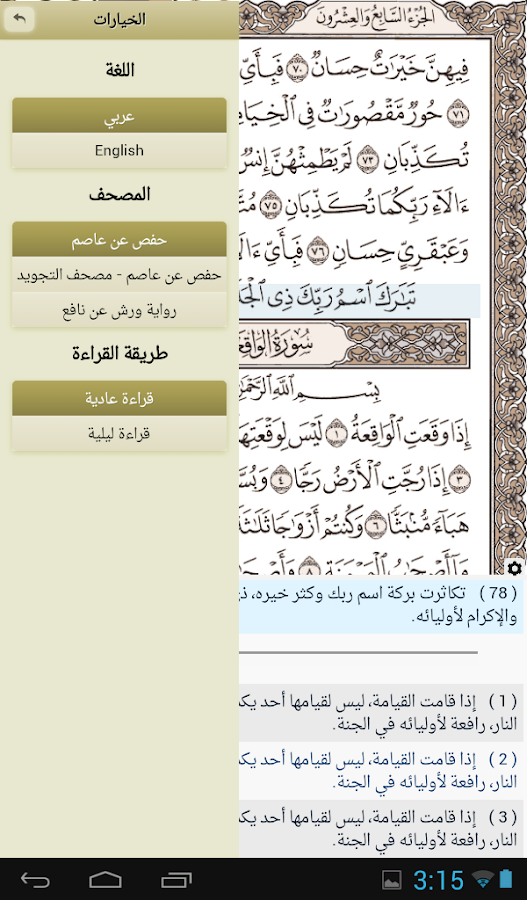 الخيارات
اللغة
عربي
English
المصحف
حفص عن عاصم
حفص عن عاصم - مصحف التجويد
رواية ورش عن نافع
طريقة القراءة
قراءة عادية
قراءة ليلية
الجزء السابع والعشرون
فِيهِنَّ خَيْرَاتٌ حِسَانٌ ٧٠ فَبِأَيِّ
٧١ حُورٌ مَّقْصُورَاتٌ فِي الْخِيَامِ
تُكَذِّبَانِ ٧٣ لَمْ يَطْمِثْهُنَّ إِنسٌ
ءَالَاءِ رَبِّكُمَا تُكَذِّبَانِ ٧٥
وَعَبْقَرِيٍّ حِسَانٍ ٧٦ فَبِأَيِّ ءَالَا
تَبَارَكَ اسْمُ رَبِّكَ ذِي
سُورَةُ الوَاقِعَ
بِسْمِ اللَّهِ الرَّحْمَٰ
إِذَا وَقَعَتِ الْوَاقِعَةُ ١ لَيْسَ لِوَقْعَتِهَا
٣ إِذَا رُجَّتِ الْأَرْضُ رَجًّا ٤ وَبُسَّ
هَبَاءً مُّنبَثًّا ٦ وَكُنتُمْ أَزْوَاجًا ثَلَاثَةً
٨
( 78 ) تكاثرت بركة اسم ربك وكثر خيره،
والإكرام لأوليائه.
( 1 ) إذا قامت القيامة، ليس لقيامها أحد يكذ
النار، رافعة لأوليائه في الجنة.
( 2 ) إذا قامت القيامة، ليس لقيامها أحد يكذ
النار، رافعة لأوليائه في الجنة.
( 3 ) إذا قامت القيامة، ليس لقيامها أحد يكذ
النار، رافعة لأوليائه في الجنة.
3:15